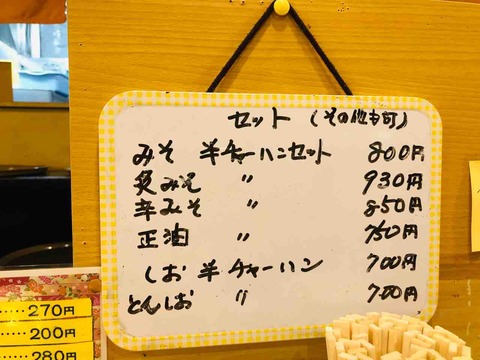 セット (その他も可)
みそ 半チャーハンセット 800円
炙みそ 〃 930円
辛みそ 〃 850円
正油 〃 750円
しお 半チャーハン 700円
とんしお 〃 700円
.....270円
.....200円
.....280円